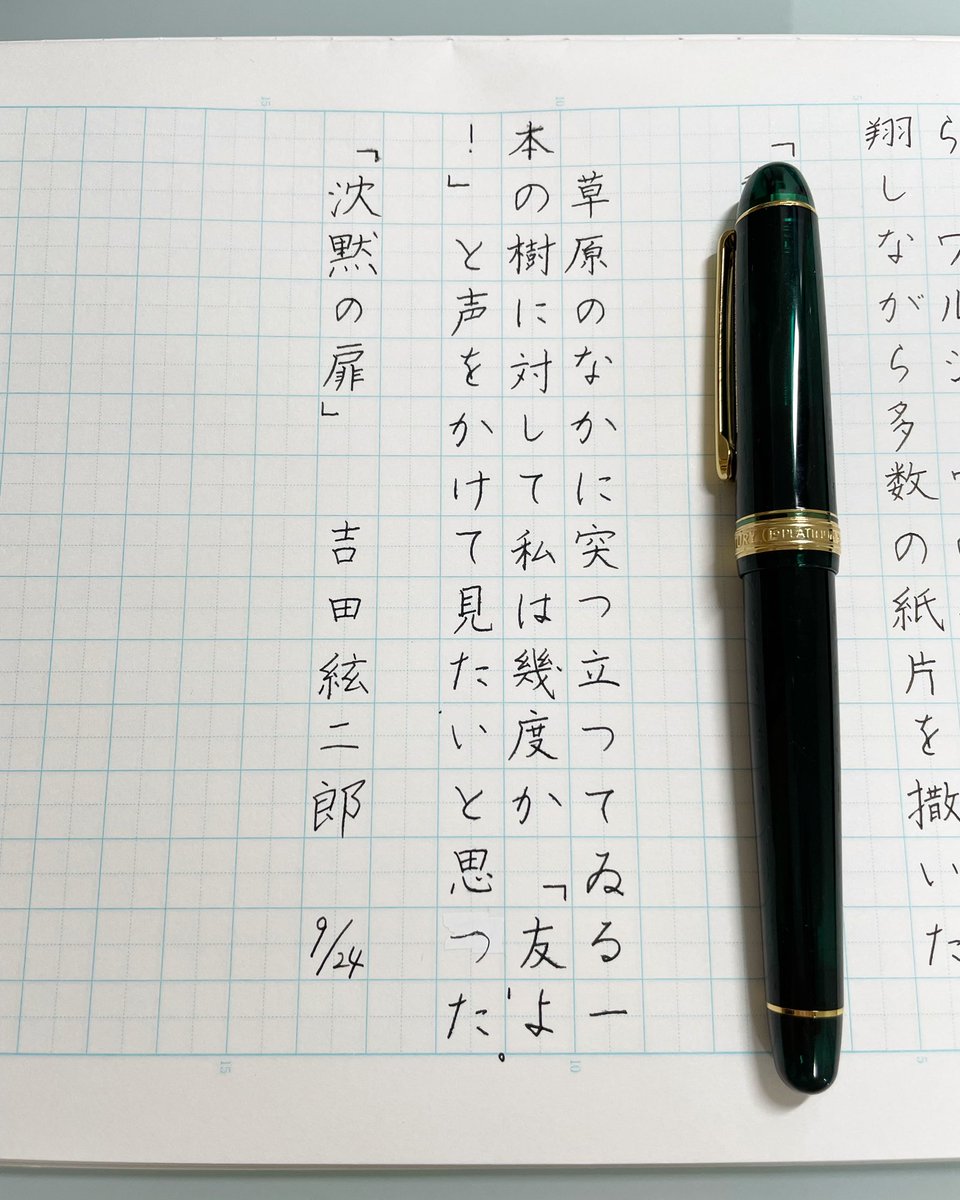 ら
翔しながら多数の紙片を撒いた
「
草原のなかに突つ立つてゐる一
本の樹に対して私は幾度か「友よ
!」と声をかけて見たいと思つた。
「沈黙の扉」 吉田絃二郎 9/24
5
10
15
5
10
15
PLATINUM